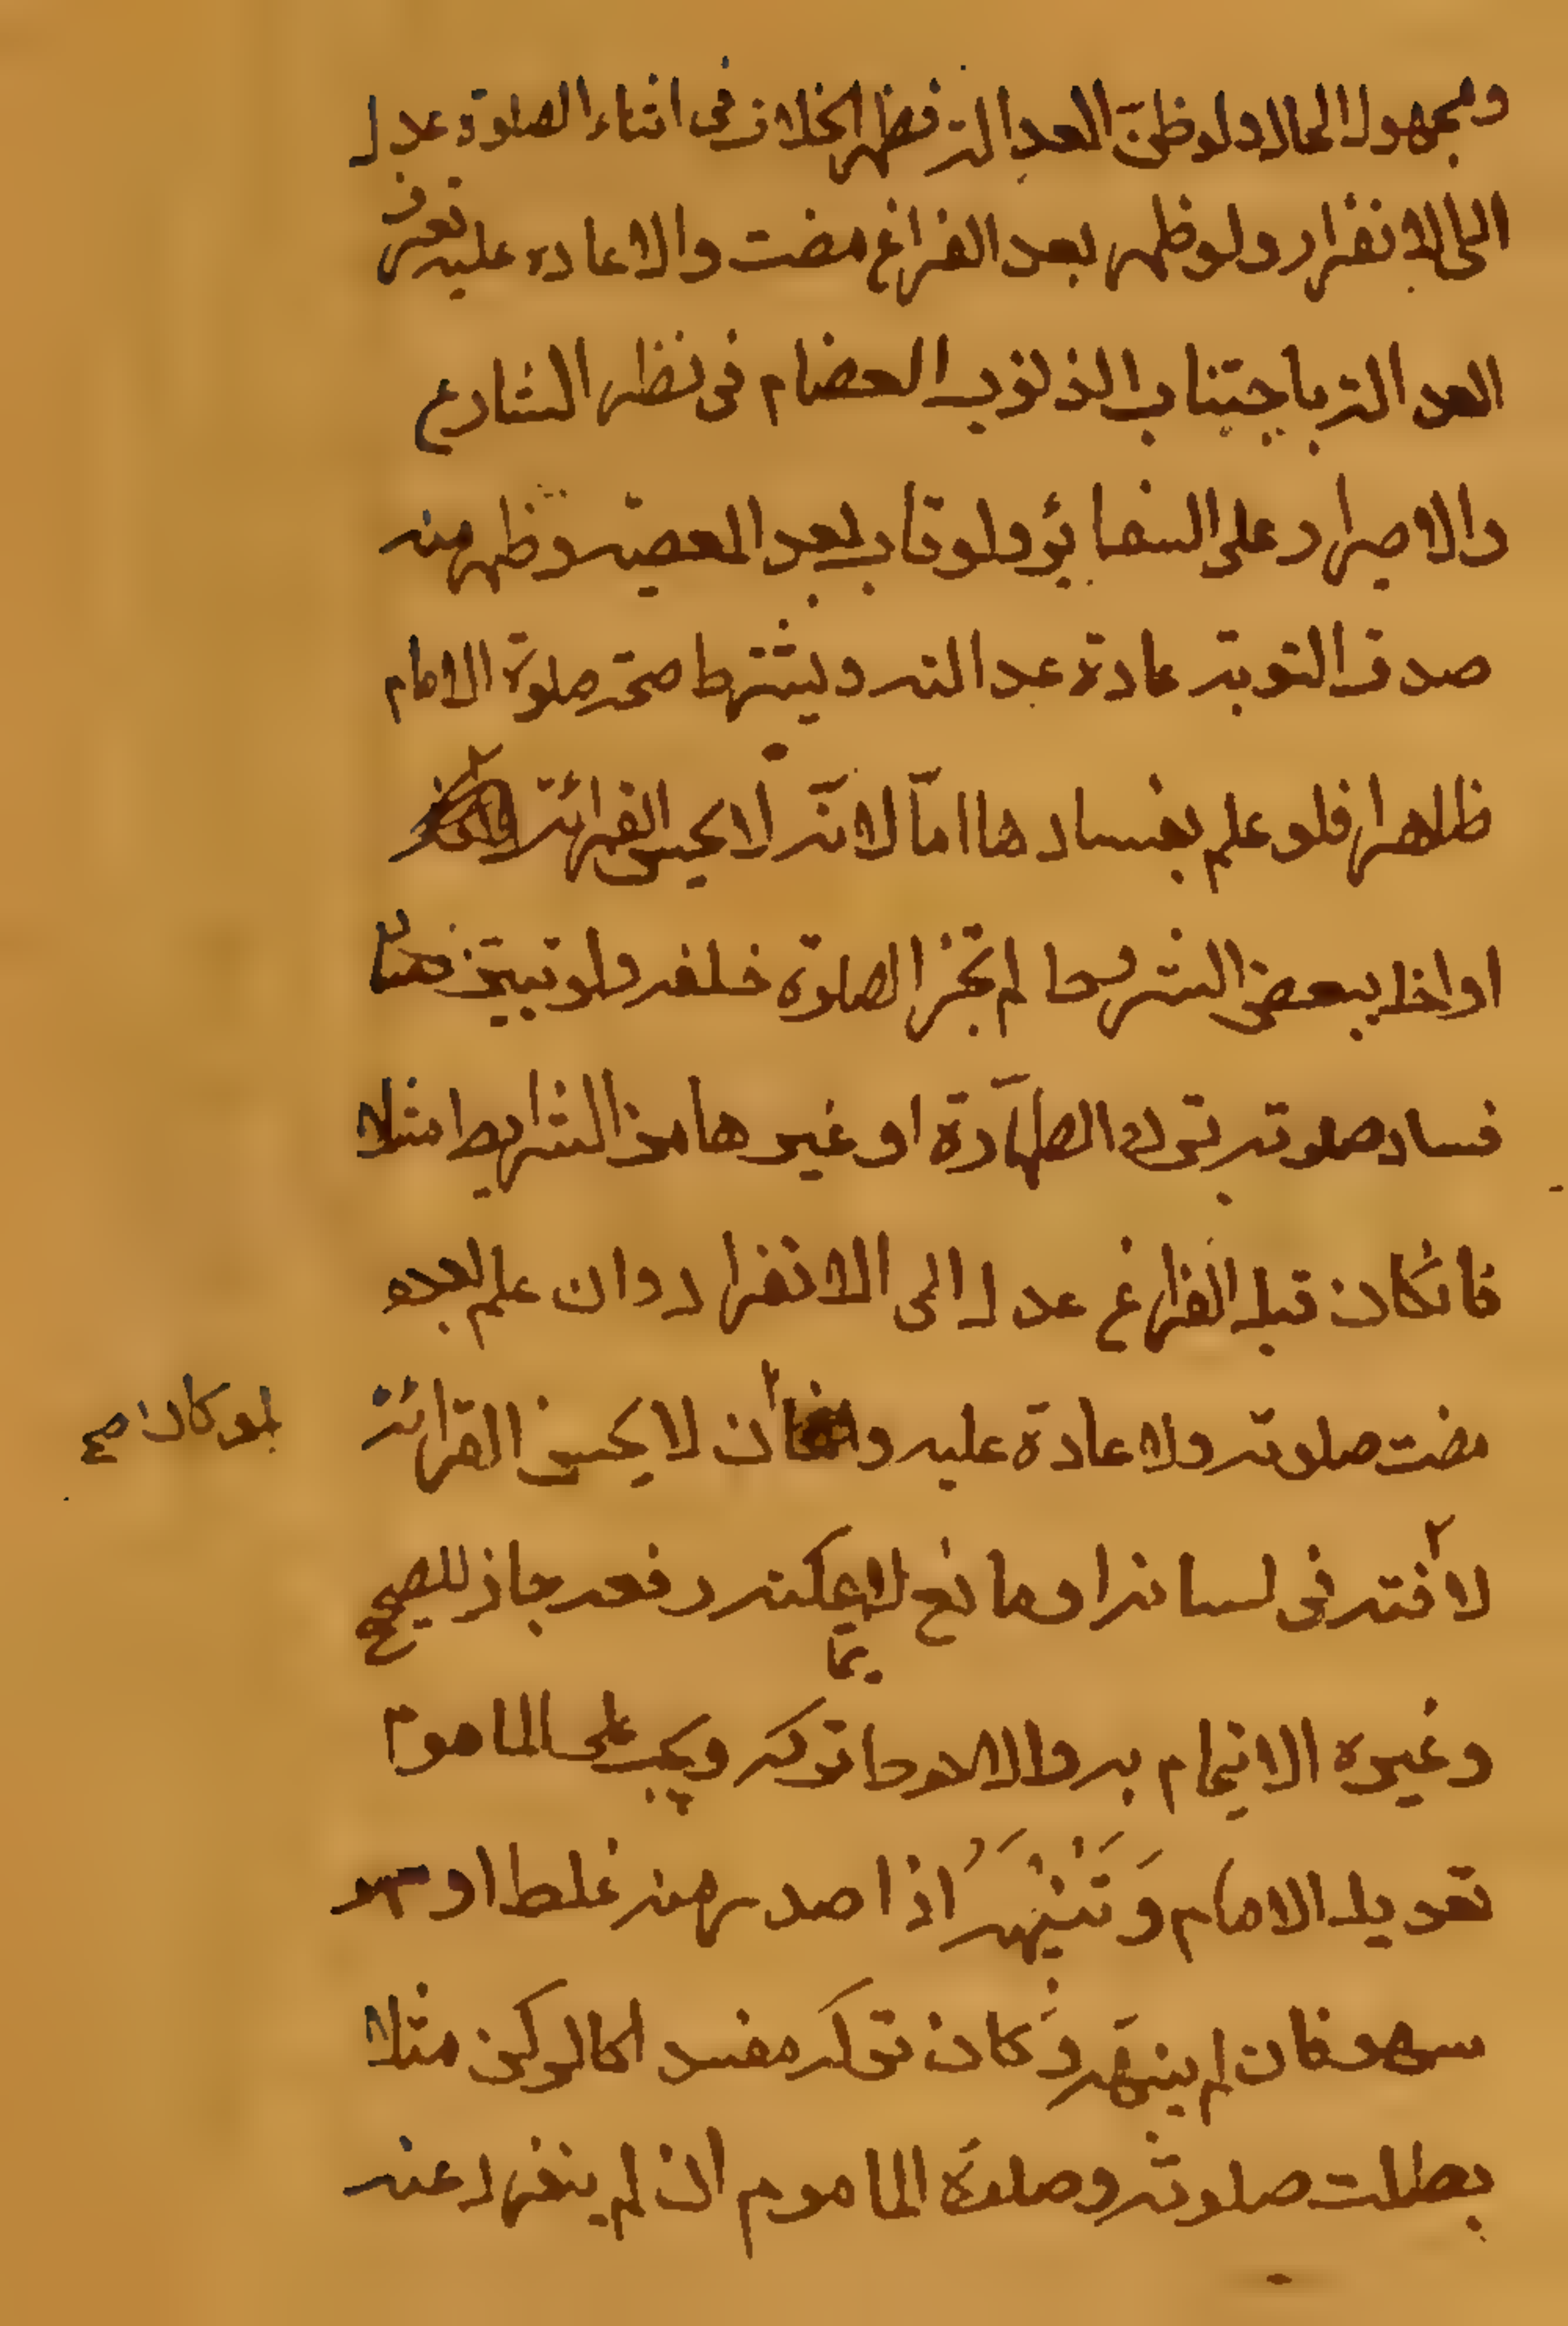 ومجهول الحال ولو ظنّ العدالة فظهر الخلاف فى اثناء الصلوة عدل
الى الانفرار ولو ظهر بعد الفراغ مضت والاعاده عليه تعرف
العدالة باجتناب الذنوب العضام فى نظر الشارع
والاصرار على السغائر ولو تاب بعد المعصية وظهر منه
صدق التوبة عادة عدالته ويشترط صحة صلوة الامام
ظاهرا فلو علم بفسادها امّا لانّه لا يحسن القرائة
او اخل ببعض الشروط لم تجز الصلوة خلفه ولو تبيّن
فساد صلوته بترك الطهارة او غيرها من الشرايط مثلا
فانكان قبل الفراغ عدل الى الانفراد وان علم بعده
مضت صلوته ولا عادة عليه و ان لا يحسن القرائة
لو كان صح
لافته فى لسانه او مانع لا يمكنه رفعه جاز للصحيح
وغيره الايتمام به والاحوط تركه ويجب على الماموم
تعويل الامام وَتَنْبْيهَهُ اذا صدر منه غلط او سهو
سهو فان لم ينبهه وَكان تركه مفسدا كالركن مثلا
بطلت صلوته وصلوة الماموم ان لم ينفرد عنه